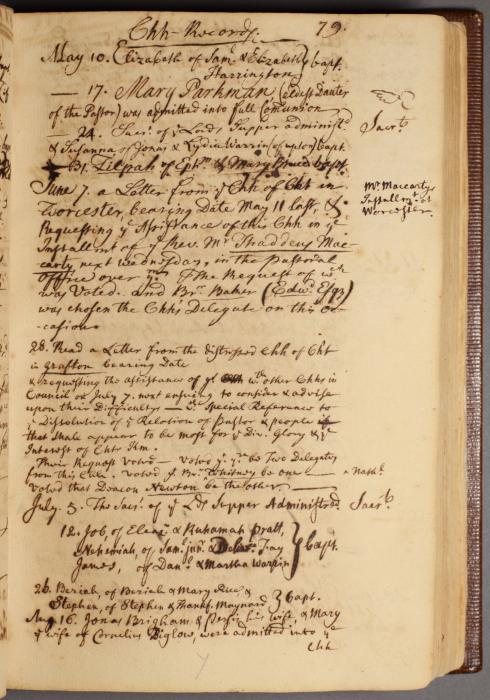 Chh-Records. 79.
May 10. Elizabeth of Sam.l & Elizabeth Harrington bapt.
— 17. Mary Parkman (eldest Dauter
of the Pastor) was admitted into full Comunion
— 24. Sacr.t of y.e Lords Supper administ.d Sacr.t
& Susanna of Jonas & Lydia Warrin (of upton) bapt.
— 31. Zilpah of Eph.m & Mary bapt.
June 7. a Letter from y.e Chh of Cht in
Worcester, bearing Date May 11 last, &
Requesting y.e Assistance of this Chh in y.e
Install.mt of y.e Rev. Mr. Thaddeus Mac-
carty next Wednesday, in the Pastoral
Office over ym. The Request of wch
was Voted. and Br. Baker (Edw.d Esqr)
was chosen the Chhs Delegate on this Oc-
-casion.
Mr. Maccartys
Installmt. at
Worcester.
28. Read a Letter from the distressed Chh of Cht
in Grafton bearing Date
& requesting the assistance of ys wth. other Chhs in
Council on July 7. next ensuing to consider & advise
upon their Difficultys — wth. Special Reference to
y.e Dissolution of y.e Relation of Pastor & people if
that shall appear to be most for y.e Div. Glory & y.e
Interest of Chts Km.
Their Request Voted — Voted yt. yr. be Two Delegates
from this Chh. Voted yt. Br. Whitney be one — Nath.l
Voted that Deacon Newton be the other
July. 5. The Sacr.t of y.e Lds Supper Administerd. Sacr.t.
12. Job, of Eleaz.r & Ruhamah Pratt,
Nehemiah, of Sam. jun. & Fay
James, of Dan.l & Martha Warrin } bapt.
26. Beriah, of Beriah & Mary Rice &
Stephen, of Stephen & Thankf. Maynard } bapt.
Aug 16. Jonas Brigham & Persis his wife, & Mary
y.e wife of Cornelius Biglow, were admitted into y.e
Chh